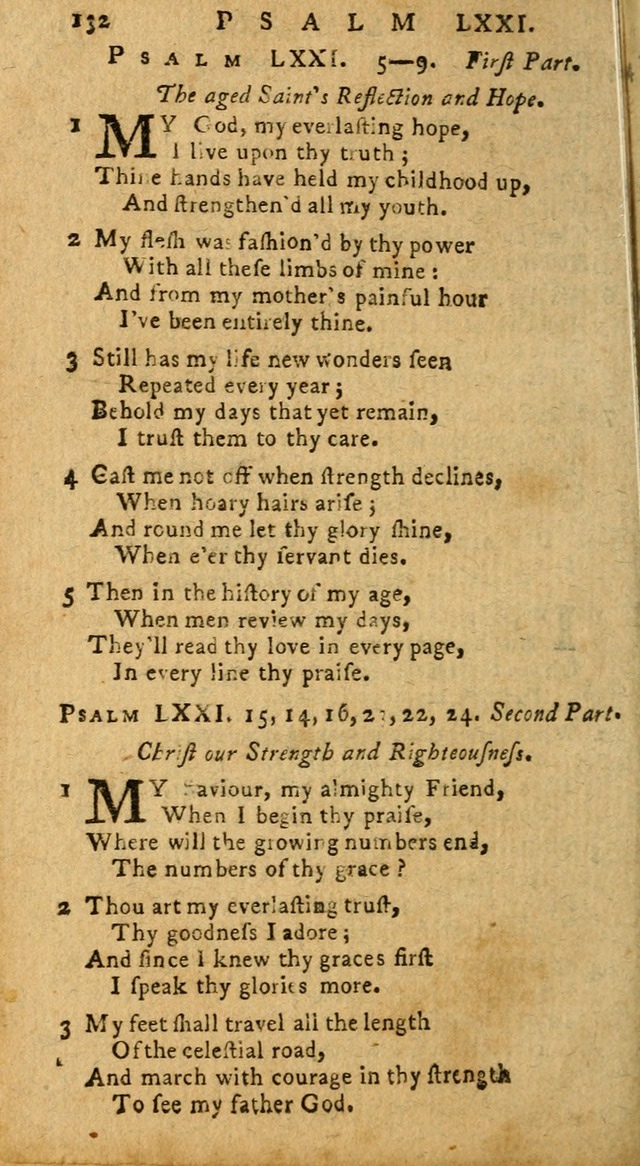 132 PSALM LXXI.
PSALM LXXI. 5—9. Firſt Part.
The aged Saint's Reflection and Hope.
1 MY God, my everlaſting hope,
I live upon thy truth;
Thine hands have held my childhood up,
And ſtrengthen'd all my youth.
2 My fleſh was faſhion'd by thy power
With all theſe limbs of mine:
And from my mother's painful hour
I've been entirely thine.
3 Still has my life new wonders ſeen
Repeated every year;
Behold my days that yet remain,
I truſt them to thy care.
4 Caſt me not off when ſtrength declines,
When hoary hairs ariſe;
And round me let thy glory ſhine,
When e'er thy ſervant dies.
5 Then in the hiſtory of my age,
When men review my days,
They'll read thy love in every page,
In every line thy praiſe.
PSALM LXXI. 15, 14, 16, 22, 24. Second Part.
Chriſt our Strength and Righteouſneſs.
1 MY Saviour, my almighty Friend,
When I begin thy praiſe,
Where will the growing numbers end,
The numbers of thy grace?
2 Thou art my everlaſting truſt,
Thy goodneſs I adore;
And ſince I knew thy graces firſt
I ſpeak thy glories more.
3 My feet ſhall travel all the length
Of the celeſtial road,
And march with courage in thy ſtrength
To ſee my father God.